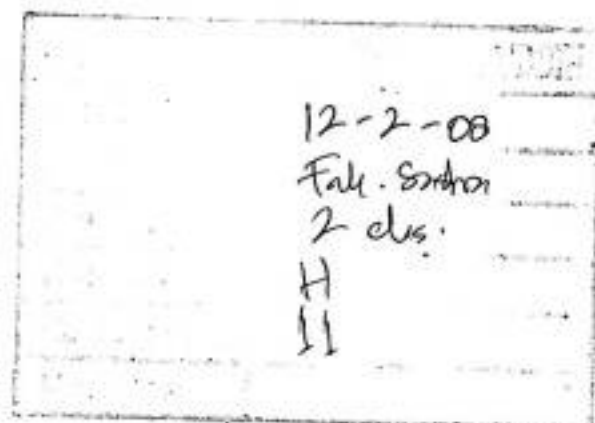 12-2-08
Fak. Sastra
2 cls.
H
11